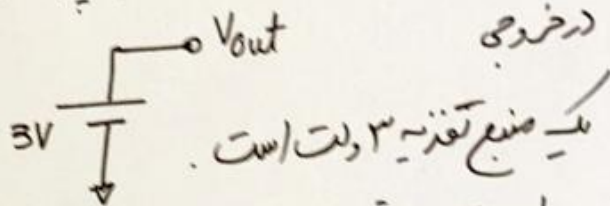 Vout
در خروجی
3V
یک منبع تغذیه ۳ ولت است .